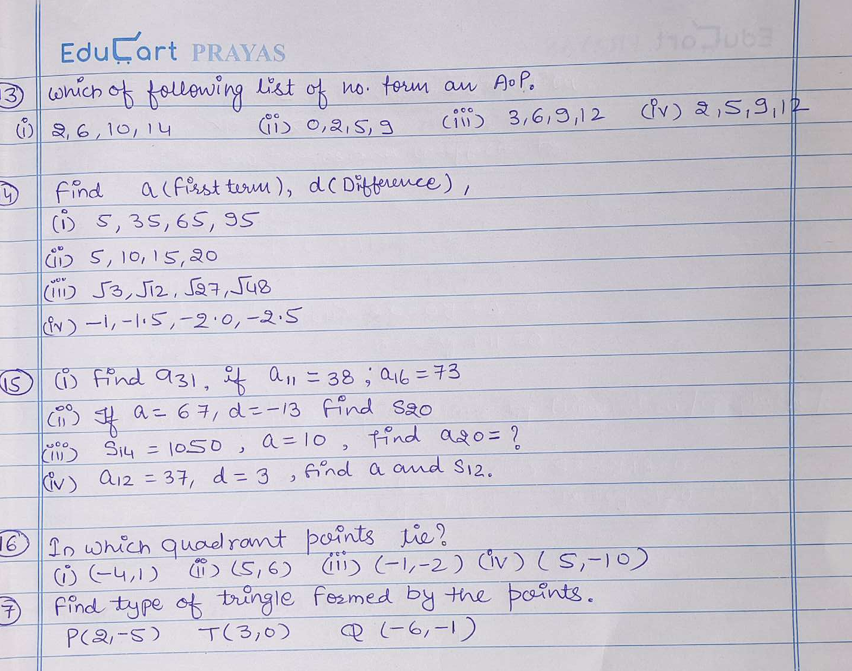 EduCart PRAYAS
13) which of following list of no. form an A.P.
(i) 2, 6, 10, 14 (ii) 0, 2, 5, 9 (iii) 3, 6, 9, 12 (iv) 2, 5, 9, 12
4) Find a (first term), d (Difference),
(i) 5, 35, 65, 95
(ii) 5, 10, 15, 20
(iii) √3, √12, √27, √48
(iv) -1, -1.5, -2.0, -2.5
15 (i) Find a31, if a11 = 38 ; a16 = 73
(ii) If a = 67, d = -13 find S20
(iii) S14 = 1050, a = 10, find a20 = ?
(iv) a12 = 37, d = 3, find a and S12.
16 In which quadrant points lie?
(i) (-4,1) (ii) (5,6) (iii) (-1,-2) (iv) (5,-10)
7 Find type of tringle formed by the points.
P(2,-5) T(3,0) Q (-6,-1)